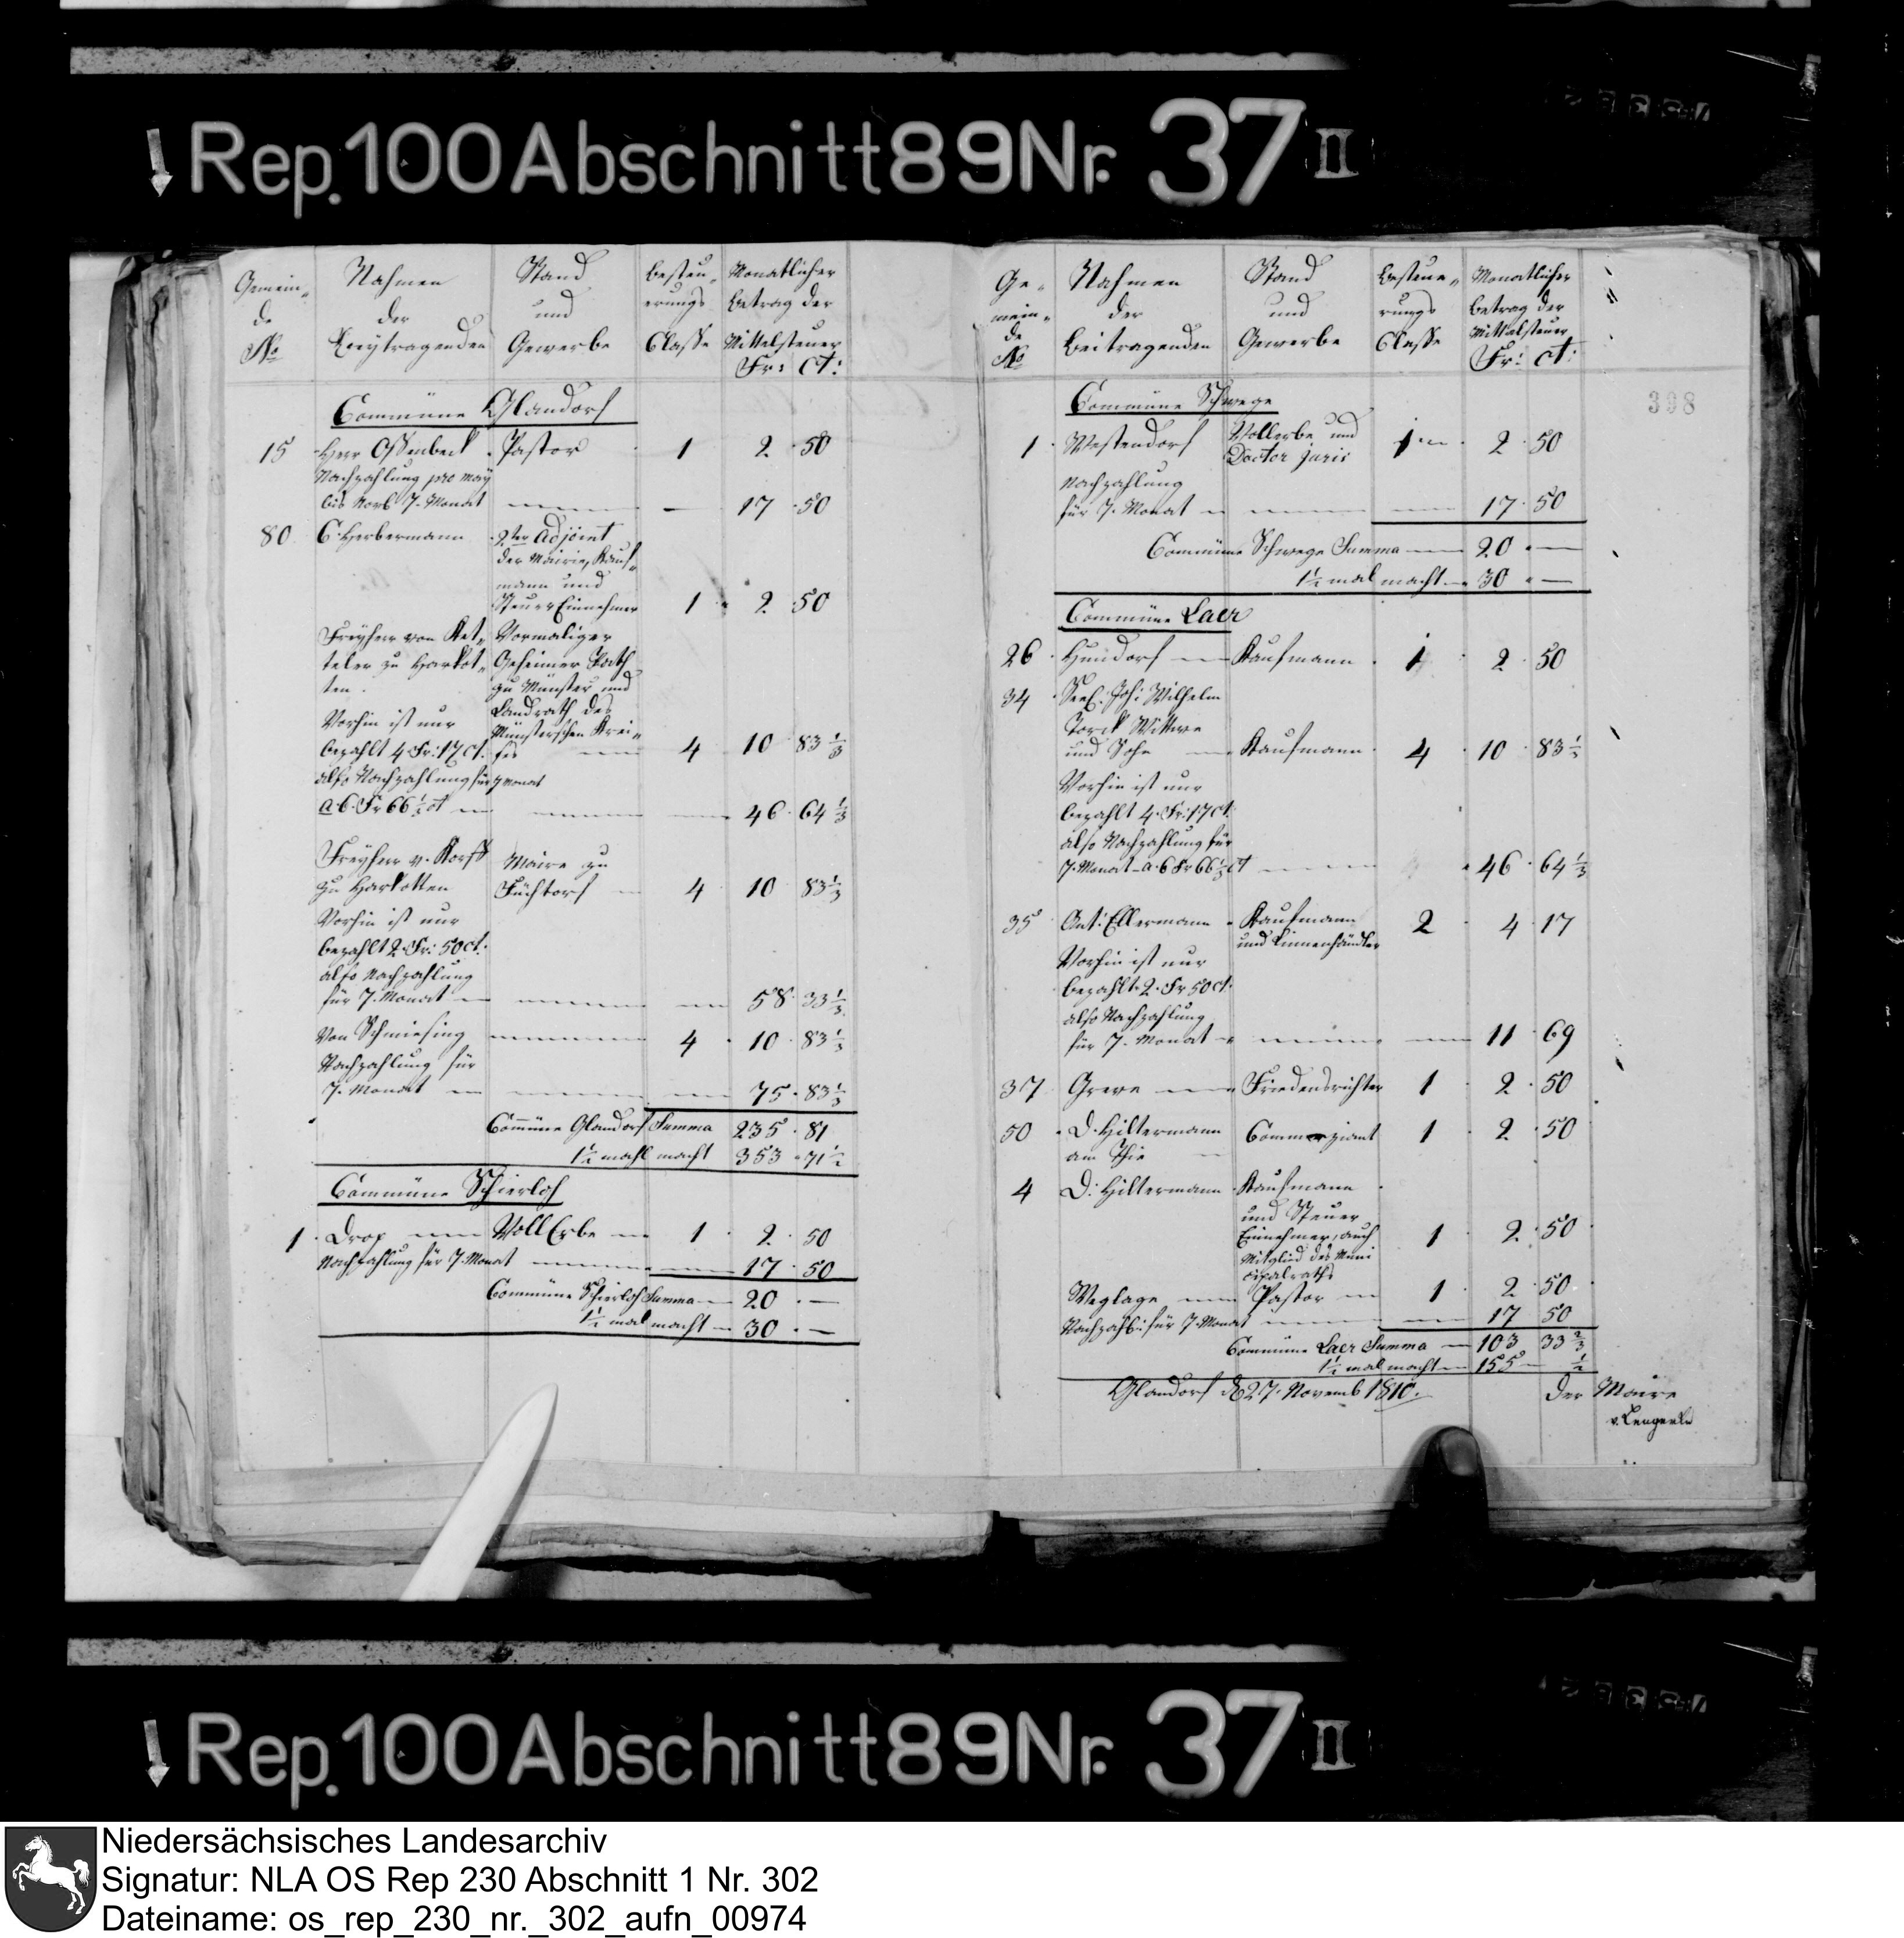 Rep. 100 Abschnitt 89 Nr. 37 II
Gemein-
de
No
Nahmen
der
Beytragenden
Stand
und
Gewerbe
Besteu-
erungs
Classe
Monatlicher
Betrag der
Mittelsteuer
Fr: ct:
Commüne Glandorf
15 Herr Ossenbeck Pastor 1 2 50
Nachzahlung pro may
bis Novb 7. Monat 17 50
80 C. Herbermann 2ter Adjoint
der Mairie, Kauf-
mann und
Steuer Einnehmer 1 2 50
Freyherr von Ket- Vormaliger
teler zu Harkot- Geheimer Rath
ten. zu Münster und
Landrath des
Vorhin ist nur Münsterschen Krei-
bezahlt 4 Fr: 17 ct. ses 4 10 83 1/3
also Nachzahlung für 7 Monat
a 6. Fr 66 1/3 ct 46 64 1/3
Freyherr v. Korff Maire zu
zu Harkotten Füchtorf 4 10 83 1/3
Vorhin ist nur
bezahlt 2. Fr: 50 ct.
also Nachzahlung
für 7. Monat 58 33 1/3
Von Schmiesing 4 10 83 1/3
Nachzahlung für
7. Monat 75 83 1/3
Commüne Glandorf Summa 235 81
1 1/2 mahl macht 353 71 1/2
Commüne Schierloh
1 Drop Voll Erbe 1 2 50
Nachzahlung für 7. Monat 17 50
Commüne Schierloh Summa 20 —
1 1/2 mal macht 30 —
Ge-
mein-
de
No
Nahmen
der
Beitragenden
Stand
und
Gewerbe
Besteue-
rungs
Classe
Monatlicher
Betrag der
Mittelsteuer
Fr: ct:
398
Commüne Schwege
1 Westendorf Vollerbe und
Doctor juris 1 2 50
Nachzahlung
für 7. Monat 17 50
Commüne Schwege Summa 20 —
1 1/2 mal macht 30 —
Commüne Laer
26 Hundorf Kaufmann 1 2 50
34 Seel. Joh: Wilhelm
Torck Wittwe
und Sohn Kaufmann 4 10 83 1/3
Vorhin ist nur
bezahlt 4. Fr: 17 ct.
also Nachzahlung für
7. Monat a 6 Fr 66 1/3 ct 46 64 1/3
35 Ant: Ellermann Kaufmann 2 4 17
und Linnenhändler
Vorhin ist nur
bezahlt 2. Fr 50 ct.
also Nachzahlung
für 7. Monat 11 69
37 Greve Friedensrichter 1 2 50
50 D. Hiltermann Commerziant 1 2 50
am Thie
4 D: Hiltermann Kaufmann
und Steuer
Einnehmer, auch 1 2 50
Mitglied des Muni
cipalraths
Weglage Pastor 1 2 50
Nachzahl: für 7. Monat 17 50
Commüne Laer Summa 103 33 2/3
1 1/2 mal macht 155 — 1/2
Glandorf d 27. Novemb 1810.
Der Maire
v. Lengerke
Rep. 100 Abschnitt 89 Nr. 37 II
Niedersächsisches Landesarchiv
Signatur: NLA OS Rep 230 Abschnitt 1 Nr. 302
Dateiname: os_rep_230_nr._302_aufn_00974